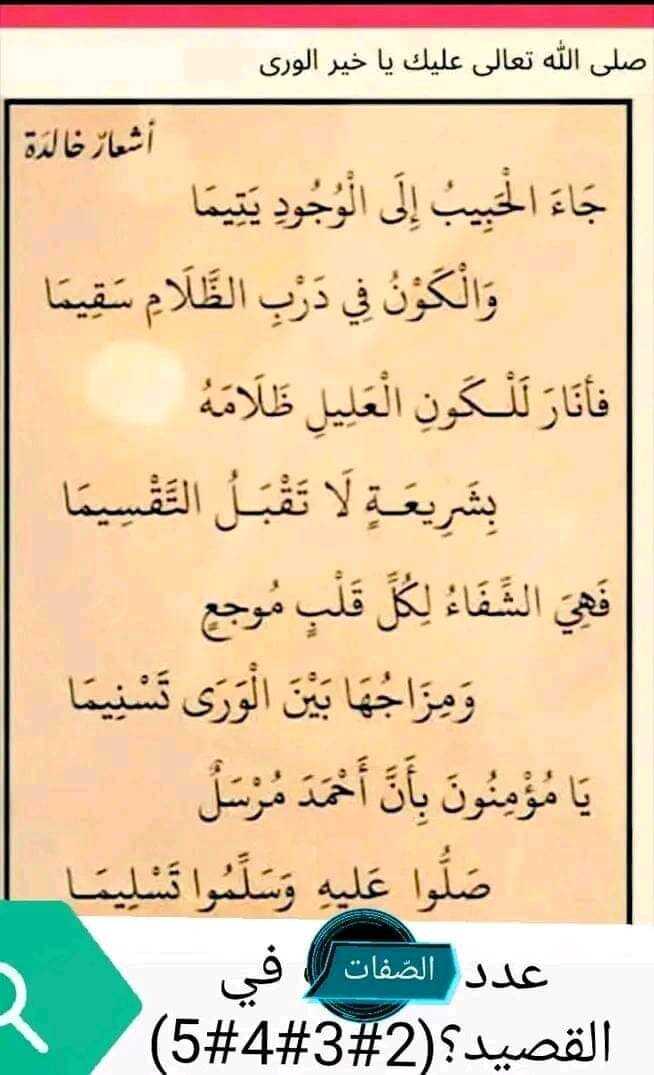 صلى الله تعالى عليك يا خير الورى
أشعارٌ خالدَة
جَاءَ الْحَبِيبُ إِلَى الْوُجُودِ يَتِيمَا
وَالْكَوْنُ فِي دَرْبِ الظَّلَامِ سَقِيمَا
فأنَارَ لَلْـكَونِ الْعَلِيلِ ظَلَامَهُ
بِشَرِيعَـةٍ لَا تَقْبَـلُ التَّقْسِيمَا
فَهِيَ الشِّفَاءُ لِكُلِّ قَلْبٍ مُوجعٍ
وَمِزَاجُهَا بَيْنَ الْوَرَى تَسْنِيمَا
يَا مُؤْمِنُونَ بِأَنَّ أَحْمَدَ مُرْسَلٌ
صَلُّوا عَليهِ وَسَلِّمُوا تَسْلِيمَـا
عدد الصّفات في
القصيد؟(2#3#4#5)